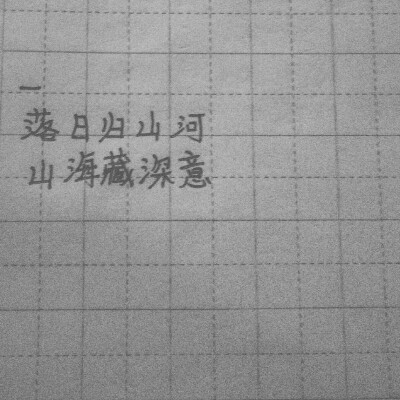 一
落日归山河
山海藏深意